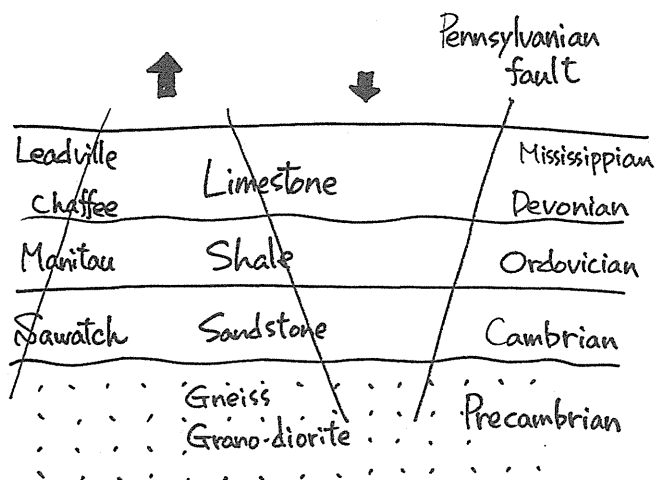 Pennsylvanian
fault
Leadville
Limestone
Mississippian
Chaffee
Devonian
Manitau
Shale
Ordovician
Sawatch
Sandstone
Cambrian
Gneiss
Grano-diorite
Precambrian